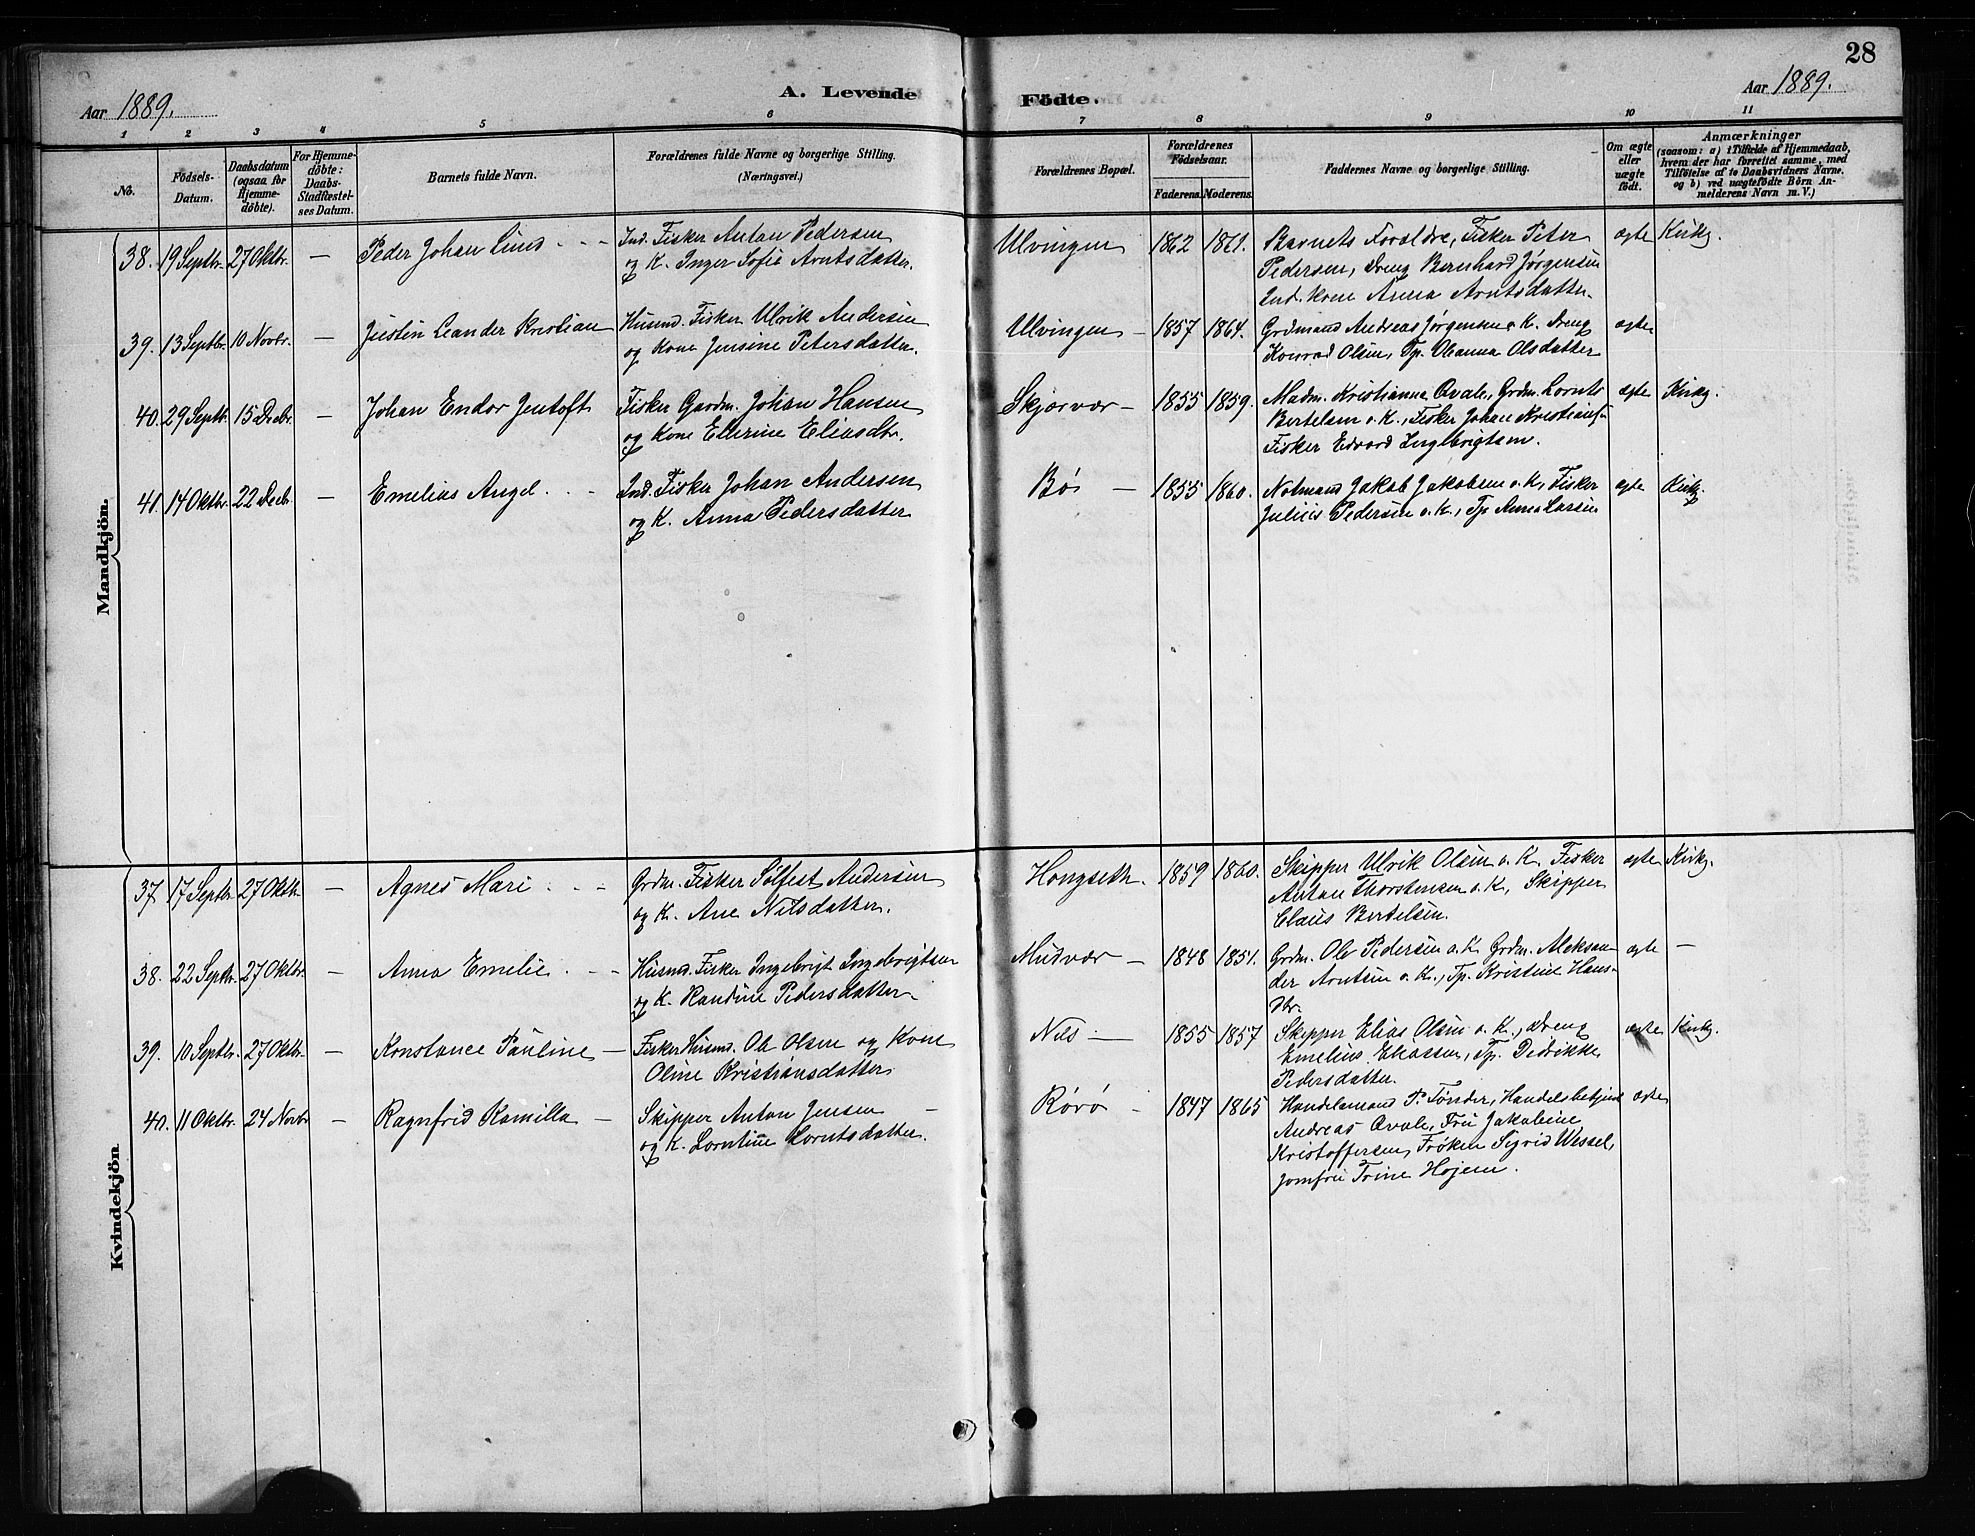 28
Aar 1889.
A. Levende Födte.
Aar 1889.
1 2 3 4 5 6 7 8 9 10 11
No.
Födsels-Datum.
Daabsdatum (ogsaa för Hjemme-döbte).
For Hjemme-döbte: Daabs-Stadfæstel-ses Datum.
Barnets fulde Navn.
Forældrenes fulde Navne og borgerlige Stilling. (Næringsvei.)
Forældrenes Bopæl.
Forældrenes Födselsaar.
Faderens. Moderens.
Faddernes Navne og borgerlige Stilling.
Om ægte eller uægte födt.
Anmærkninger
(saasom: a) i Tilfælde af Hjemmedaab, hvem der har forrettet samme, med Tilföielse af to Daabsvidners Navne. og b) ved uægtefödte Börn An-melderens Navn m. V.)
Mandkjön.
38. 19 Septbr. 27 Oktbr. — Peder Johan Lund - - - Ind. Fisker Anton Pedersen
og K. Inger Sofie Arntsdatter.
Ulvingen 1862 1861. Barnets Forældre, Fisker Peter
Pedersen, Dreng Bernhard Jørgensen
Ind. kone Anna Arntsdatter.
ægte Kirkg.
39. 13 Septbr. 10 Novbr. — Justin Leander Kristian Husmd. Fisker Ulrik Andersen
og Kone Jensine Petersdatter.
Ulvingen — 1857 1864. Grdmand Andreas Jørgensen o. K. Dreng
Konrad Olsen, Tp. Oleanna Olsdatter
ægte
40. 29 Septbr. 15 Decbr. — Johan Endor Jentoft Fisker Gaardm. Johan Hansen
og Kone Ellerine Eliasdtr.
Skjærvær — 1855 1859. Madm. Kristianne Qvale, Grdm. Lornts
Bertelsen o. K., Fisker Johan Kristians.
Fisker Edvard Ingebrigtsen.
ægte Kirkg.
41. 14 Oktbr. 22 Decbr. — Emelius Angel - - - Ind. Fisker Johan Andersen
og K. Anna Pedersdatter
Bøi — 1855 1860. Notmand Jakob Jakobsen o. K, Fisker
Julius Pedersen o. K., Tp Anna Larsen
ægte Kirkg.
Kvindekjön
37 17 Septbr. 27 Oktbr. — Agnes Mari - - - Grdm. Fisker Sølfest Andersen
og K. Ane Nilsdatter.
Hongseth. 1859 1860. Skipper Ulrik Olsen o. K. Fisker
Anton Thorstensen o. K, Skipper
Claus Bertelsen.
ægte Kirkg.
38. 22 Septbr. 27 Oktbr. — Anna Emelie - - - Husmd. Fisker Ingebrigt Ingebrigtsen
og K. Randine Pedersdatter.
Mudvær — 1848 1851. Grdm. Ole Pedersen o. K. Grdm. Aleksan-
der Arntsen o. K., Tp. Kristine Hans-
dtr.
ægte —
39. 10 Septbr. 27 Oktbr. — Konstance Pauline — Fisker Husmd. Ole Olsen og Kone
Oline Kristiansdatter
Nils — 1855 1857 Skipper Elias Olsen o. K., Dreng
Emelius Eliassen, Tp. Didrikke
Pedersdatter.
ægte Kirkg.
40. 11 Oktbr. 24 Novbr — Ragnfrid Kamilla — Skipper Anton Jensen —
og K. Lorntine Lorntsdatter.
Rørø - 1847 1865 Handelsmand P. Tønder, Handelsbetjent
Andreas Qvale, Fru Jakobine
Kristoffersen, Frøken Sigrid Wessel,
Jomfru Trine Højem.
ægte